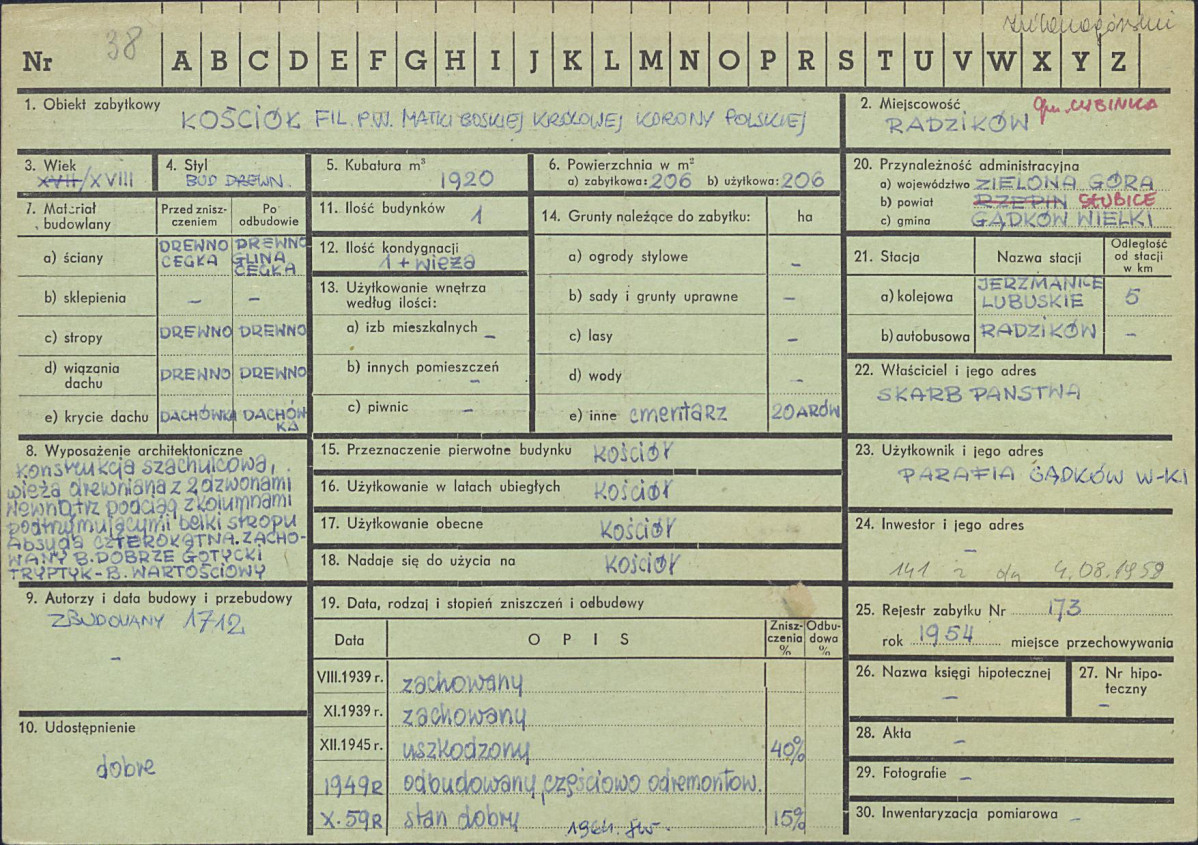 zielonogórski
Nr 38 A B C D E F G H I J K L M N O P R S T U V W X Y Z
1. Obiekt zabytkowy
KOŚCIÓŁ FIL. P.W. MATKI BOSKIEJ KRÓLOWEJ KORONY POLSKIEJ
2. Miejscowość gm. CYBINKA
RADZIKÓW
3. Wiek
XVII/XVIII
4. Styl
BUD DREWN.
5. Kubatura m³
1920
6. Powierzchnia w m²
a) zabytkowa: 206 b) użytkowa: 206
7. Materiał budowlany
Przed zniszczeniem
Po odbudowie
a) ściany DREWNO CEGŁA DREWNO GLINA CEGŁA
b) sklepienia – –
c) stropy DREWNO DREWNO
d) wiązania dachu DREWNO DREWNO
e) krycie dachu DACHÓWKA DACHÓWKA
8. Wyposażenie architektoniczne
Konstrukcja szachulcowa,
wieża drewniana z 2 dzwonami
Wewnątrz podciąg z kolumnami
podtrzymującymi belki stropu
Absyda CZTEROKĄTNA. ZACHO-
WANY B. DOBRZE GOTYCKI
TRYPTYK - B. WARTOŚCIOWY
9. Autorzy i data budowy i przebudowy
ZBUDOWANY 1712
–
10. Udostępnienie
dobre
11. Ilość budynków 1
12. Ilość kondygnacji
1 + wieża
13. Użytkowanie wnętrza
według ilości:
a) izb mieszkalnych –
b) innych pomieszczeń
–
c) piwnic –
14. Grunty należące do zabytku: ha
a) ogrody stylowe –
b) sady i grunty uprawne –
c) lasy –
d) wody –
e) inne cmentarz 20 ARÓW
15. Przeznaczenie pierwotne budynku kościół
16. Użytkowanie w latach ubiegłych kościół
17. Użytkowanie obecne kościół
18. Nadaje się do użycia na kościół
19. Data, rodzaj i stopień zniszczeń i odbudowy
Data OPIS Zniszczenia % Odbudowa %
VIII.1939 r. zachowany
XI.1939 r. zachowany
XII.1945 r. uszkodzony 40%
1949R odbudowany, częściowo odremontow.
X.59R stan dobry 15%
1964.
20. Przynależność administracyjna
a) województwo ZIELONA GÓRA
b) powiat RZEPIN SŁUBICE
c) gmina GĄDKÓW WIELKI
21. Stacja Nazwa stacji Odległość od stacji w km
a) kolejowa JERZMANICE LUBUSKIE 5
b) autobusowa RADZIKÓW –
22. Właściciel i jego adres
SKARB PAŃSTWA
23. Użytkownik i jego adres
PARAFIA GĄDKÓW W-KI
24. Inwestor i jego adres
–
141 z dn 4.08.1958
25. Rejestr zabytku Nr 173
rok 1954 miejsce przechowywania
26. Nazwa księgi hipotecznej
–
27. Nr hipoteczny
–
28. Akta –
29. Fotografie –
30. Inwentaryzacja pomiarowa –